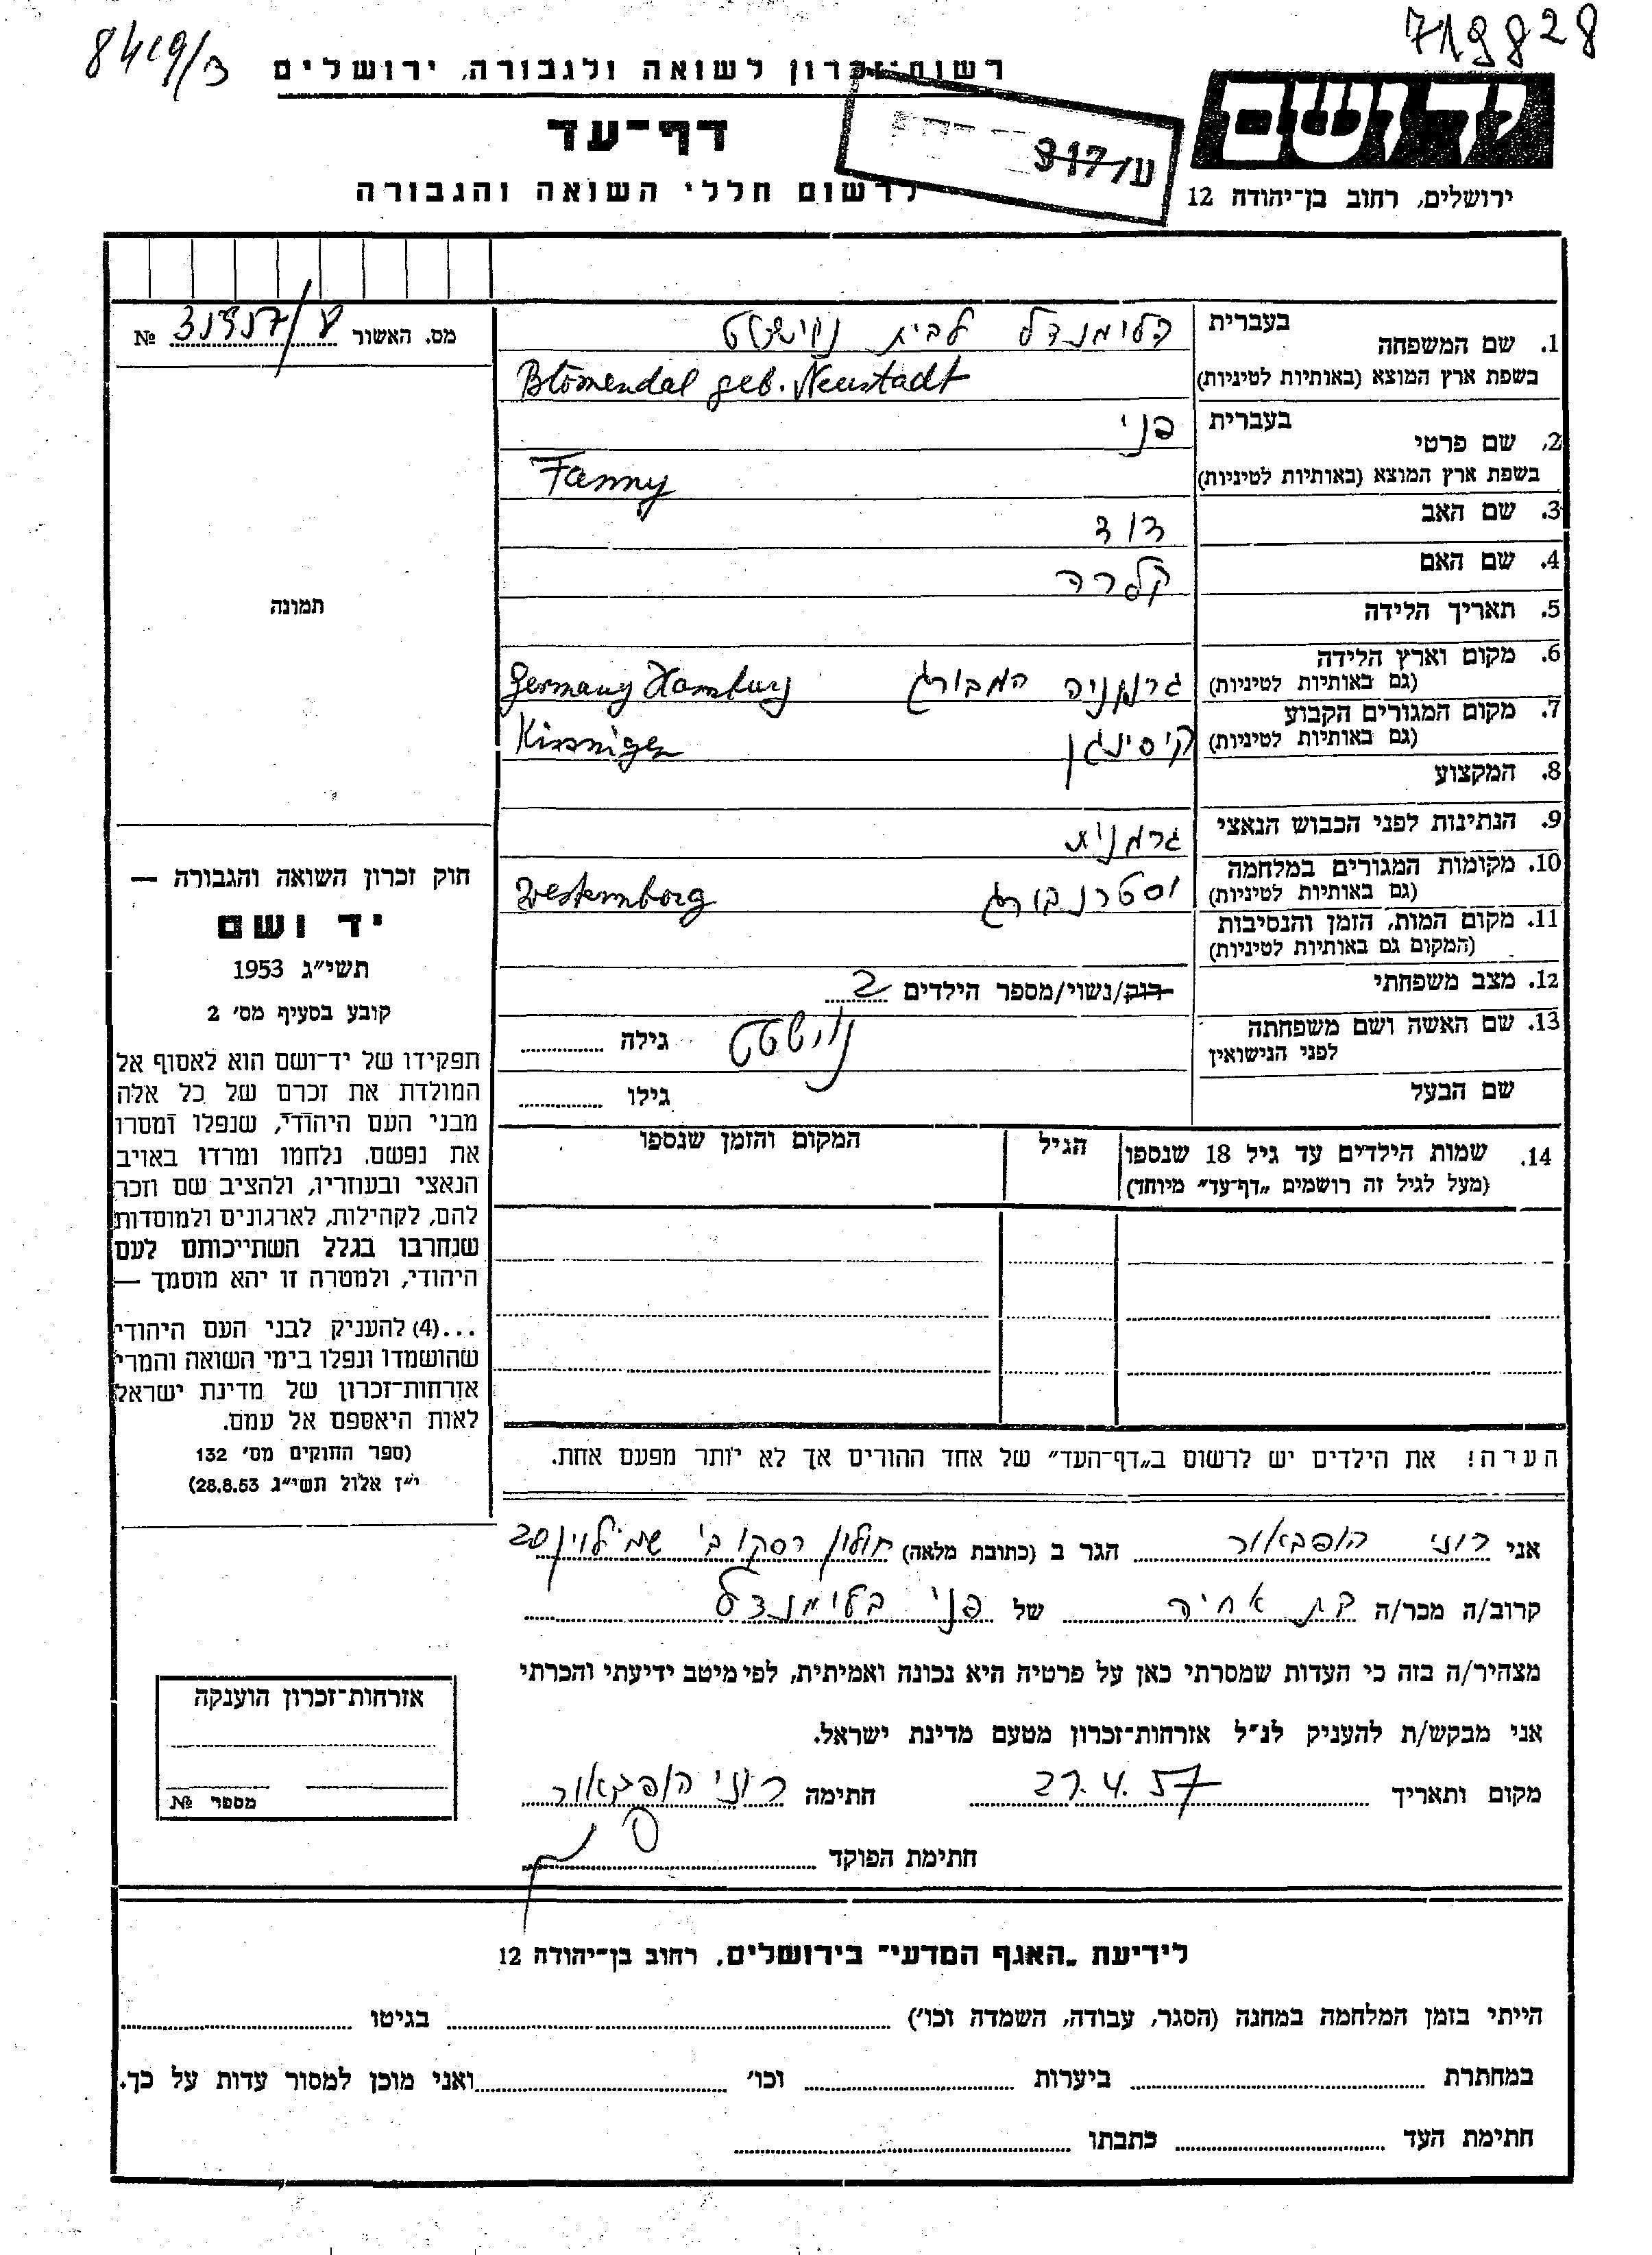 8419/3
719828
רשות־זכרון לשואה ולגבורה, ירושלים
יד ושם
דף־עד
ע/317
לרשום חללי השואה והגבורה
ירושלים, רחוב בן־יהודה 12
מס. האשור № 31317/ע
1. שם המשפחה
בעברית
בלומנדל לבית נוישטט
בשפת ארץ המוצא (באותיות לטיניות)
Blömendal geb. Neustadt
2. שם פרטי
בעברית
פני
בשפת ארץ המוצא (באותיות לטיניות)
Fanny
3. שם האב
דוד
4. שם האם
קלרה
5. תאריך הלידה
6. מקום וארץ הלידה
(גם באותיות לטיניות)
גרמניה המבורג Germany Hamburg
7. מקום המגורים הקבוע
(גם באותיות לטיניות)
קיסינגן Kissnigen
8. המקצוע
9. הנתינות לפני הכבוש הנאצי
גרמנית
10. מקומות המגורים במלחמה
(גם באותיות לטיניות)
וסטרנבורג Westernborg
11. מקום המות, הזמן והנסיבות
(המקום גם באותיות לטיניות)
12. מצב משפחתי
רוק/נשוי/מספר הילדים 2
13. שם האשה ושם משפחתה
לפני הנישואין
נוישטט
גילה
שם הבעל
גילו
14. שמות הילדים עד גיל 18 שנספו
(מעל לגיל זה רושמים "דף־עד" מיוחד)
הגיל
המקום והזמן שנספו
תמונה
חוק זכרון השואה והגבורה —
יד ושם
תשי"ג 1953
קובע בסעיף מס׳ 2
תפקידו של יד־ושם הוא לאסוף אל
המולדת את זכרם של כל אלה
מבני העם היהודי, שנפלו ומסרו
את נפשם, נלחמו ומרדו באויב
הנאצי ובעוזריו, ולהציב שם וזכר
להם, לקהילות, לארגונים ולמוסדות
שנחרבו בגלל השתייכותם לעם
היהודי, ולמטרה זו יהא מוסמך —
...(4) להעניק לבני העם היהודי
שהושמדו ונפלו בימי השואה והמרי
אזרחות־זכרון של מדינת ישראל
לאות היאספם אל עמם.
(ספר החוקים מס׳ 132
י"ז אלול תשי"ג 28.8.53)
הערה! את הילדים יש לרשום ב"דף־העד" של אחד ההורים אך לא יותר מפעם אחת.
אני רוני הופבאור הגר ב (כתובת מלאה) חולון רסקו ב' שמ' לוין 20
קרוב/ה מכר/ה בת אחיה של פני בלומנדל
מצהיר/ה בזה כי העדות שמסרתי כאן על פרטיה היא נכונה ואמיתית, לפי מיטב ידיעתי והכרתי
אני מבקש/ת להעניק לנ"ל אזרחות־זכרון מטעם מדינת ישראל.
מקום ותאריך 27.4.57 חתימה רוני הופבאור
חתימת הפוקד
אזרחות־זכרון הוענקה
מספר №
לידיעת "האגף המדעי" בירושלים, רחוב בן־יהודה 12
הייתי בזמן המלחמה במחנה (הסגר, עבודה, השמדה וכו׳) בגיטו
במחתרת ביערות וכו׳ ואני מוכן למסור עדות על כך.
חתימת העד כתבתו